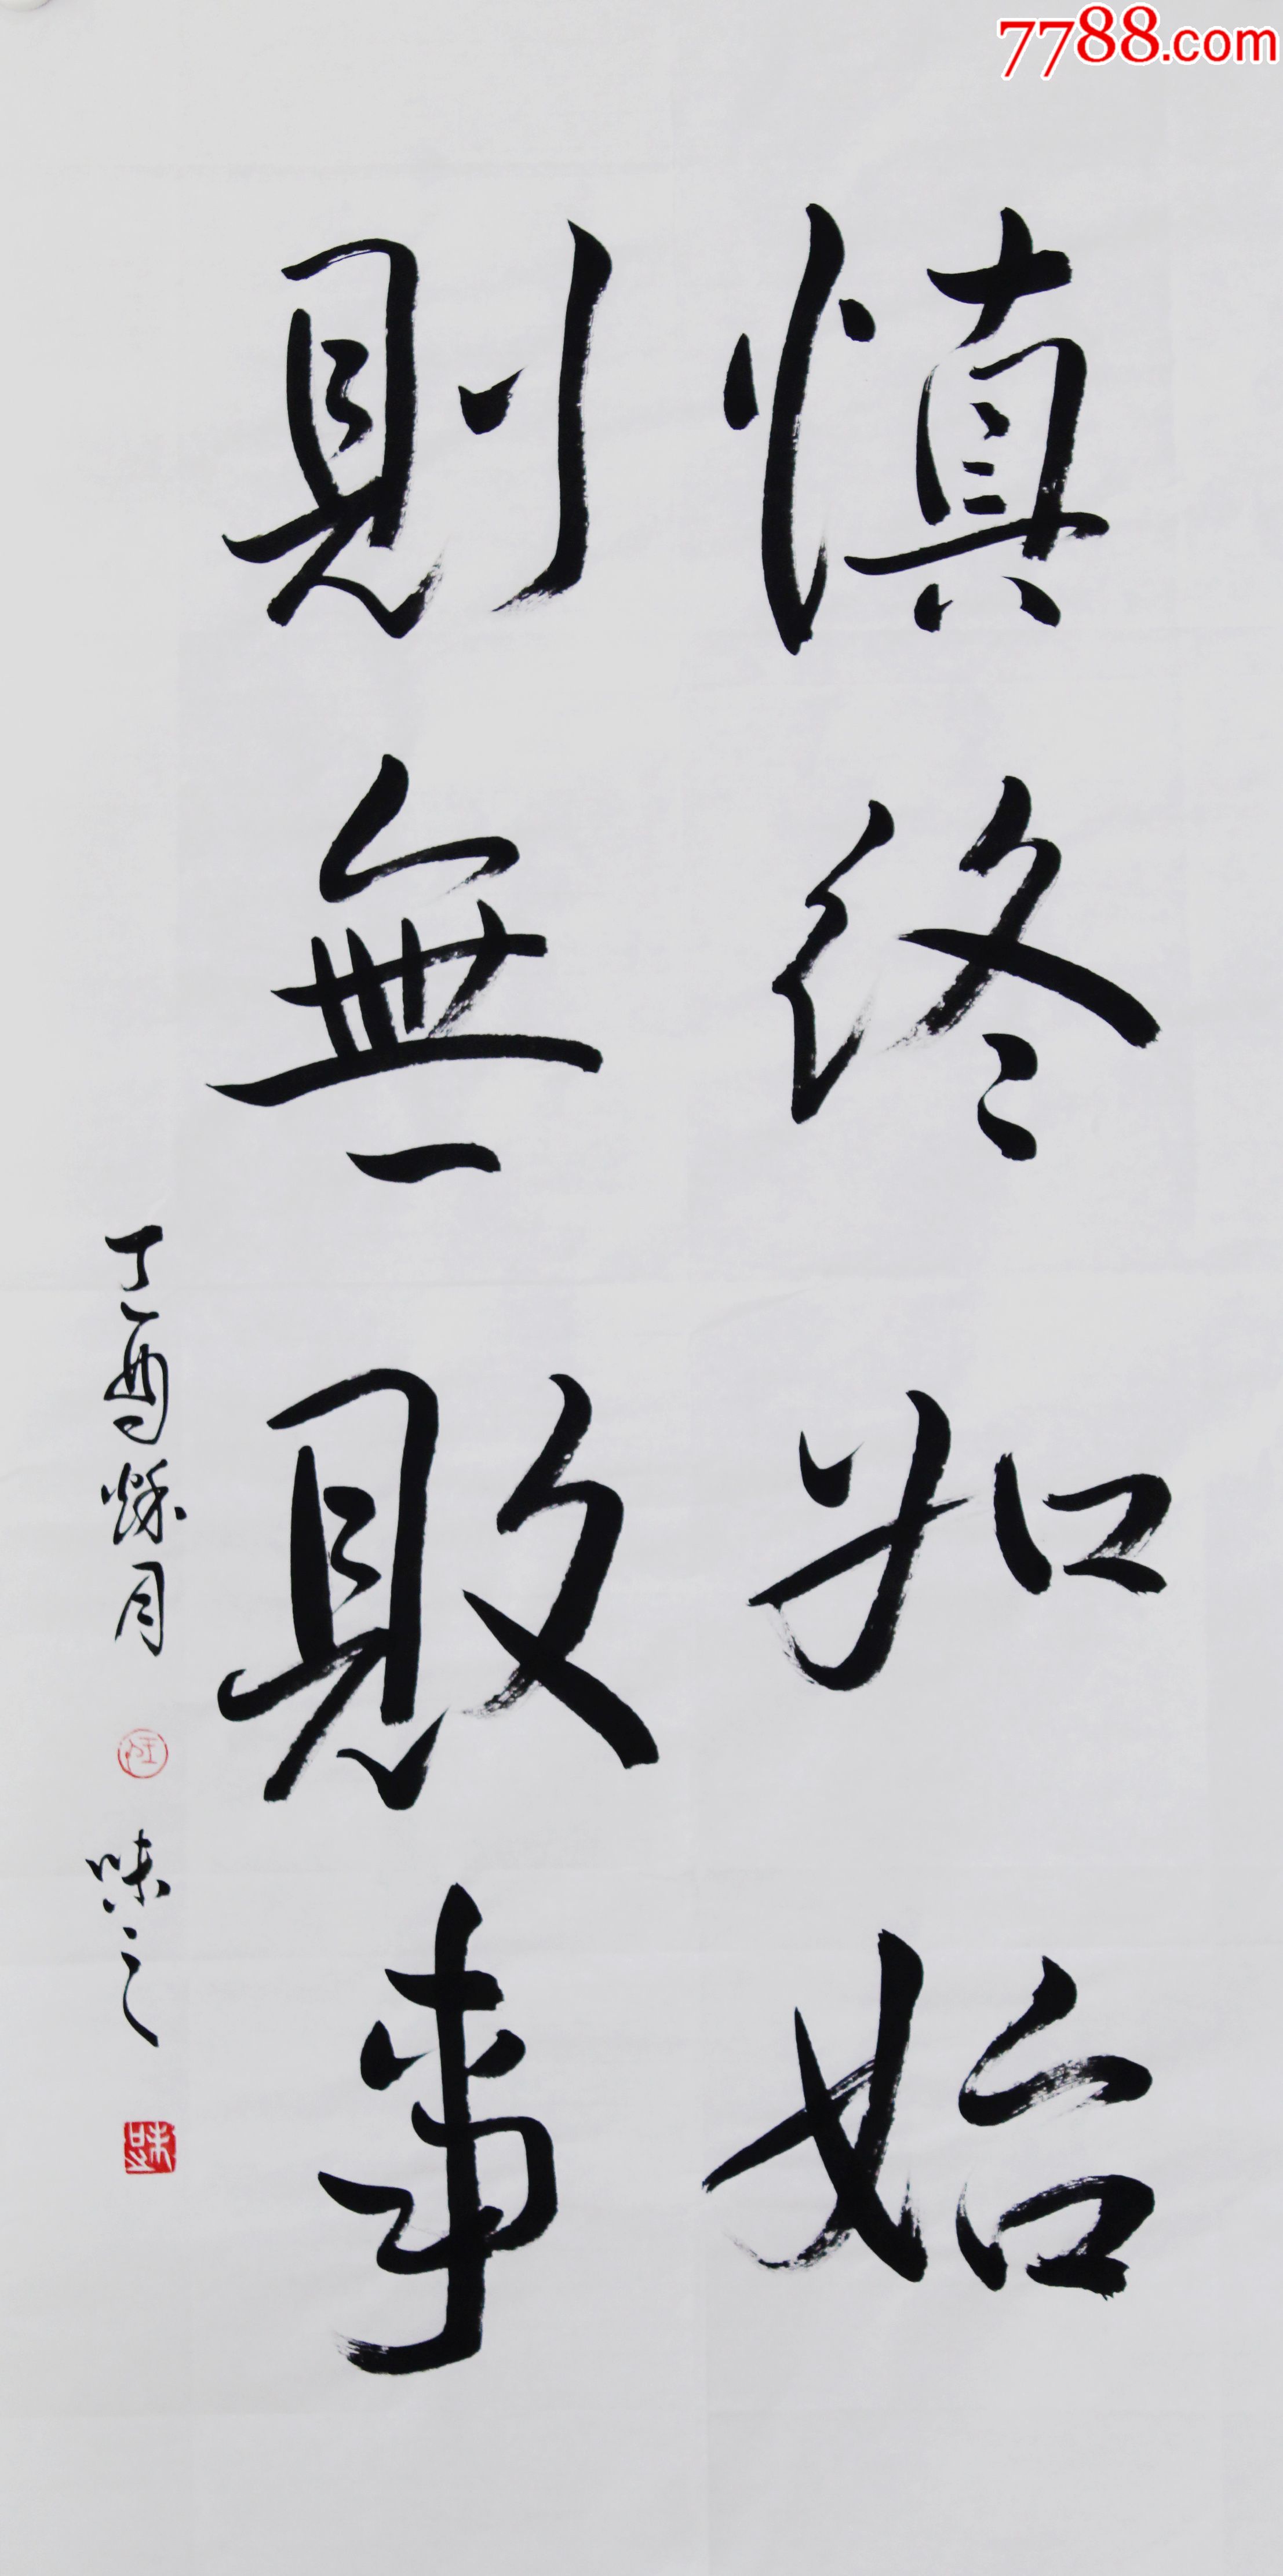 7788.com
慎終如始
則無敗事
丁酉秌月
味之
味之